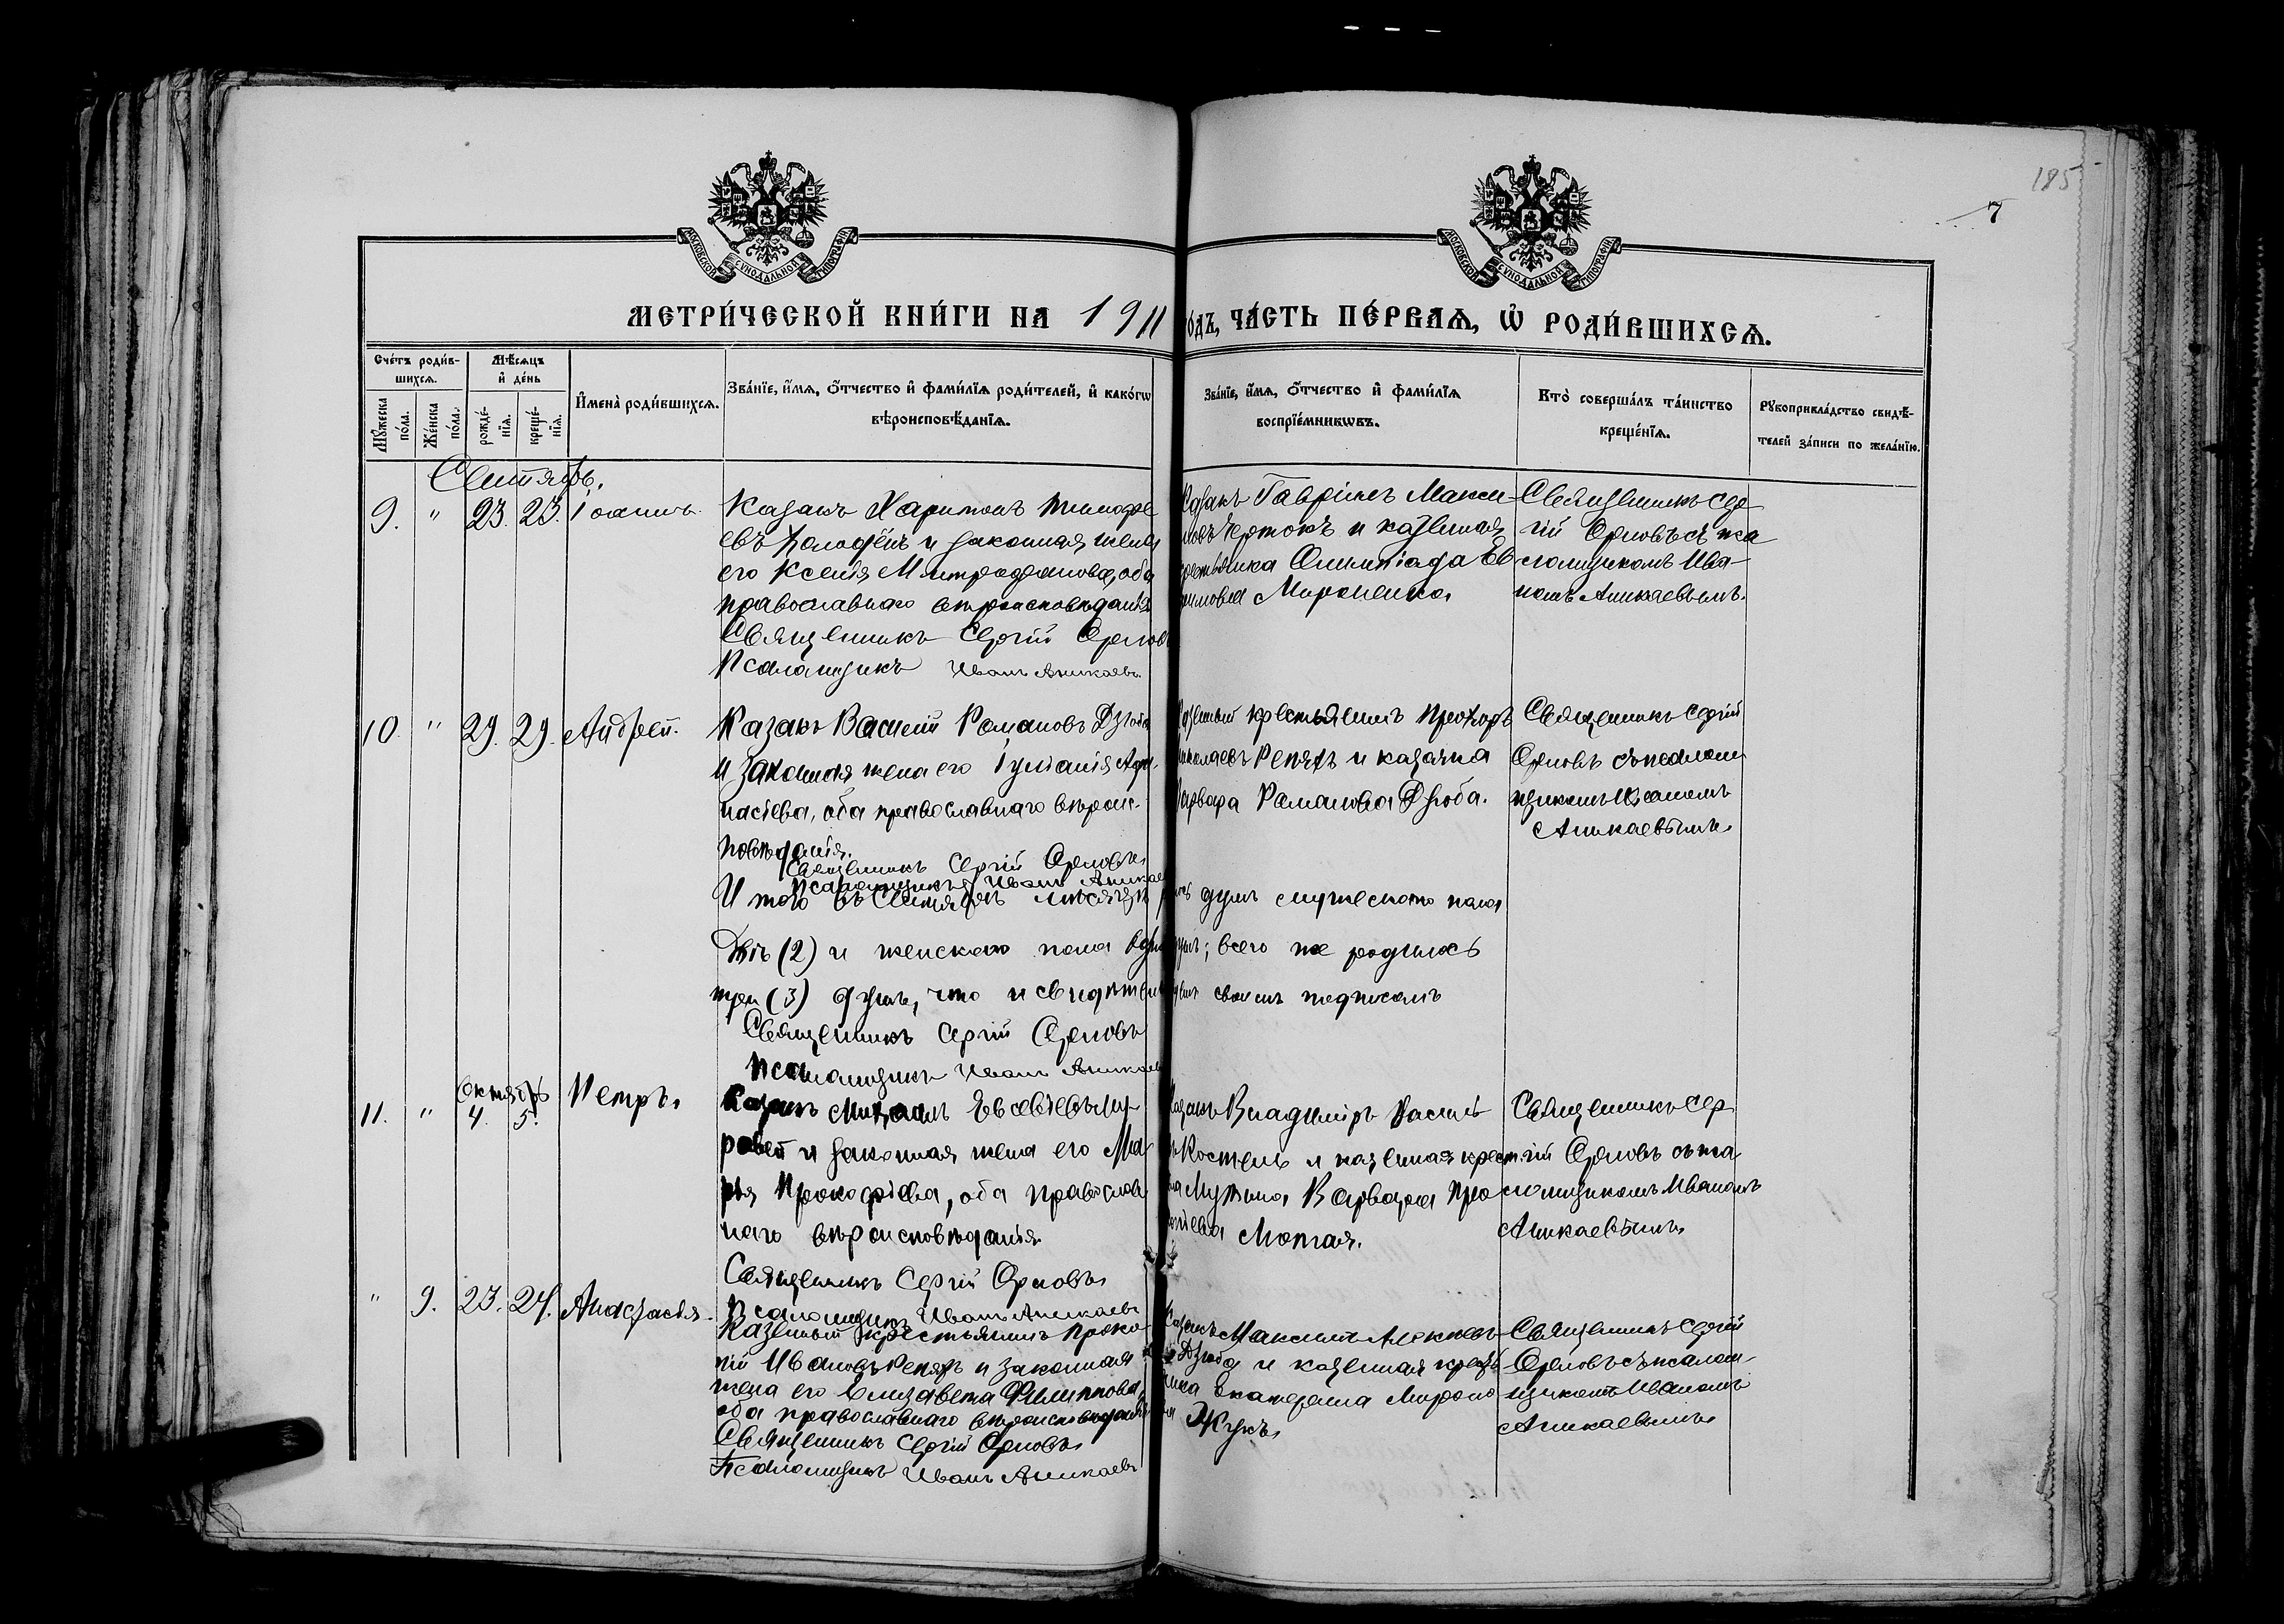 185
7
МОСКОВСКОЙ СѴНОДАЛЬНОЙ ТИПОГРАФІИ
МОСКОВСКОЙ СѴНОДАЛЬНОЙ ТИПОГРАФІИ
МЕТРИ́ЧЕСКОЙ КНИ́ГИ НА 1911 го́дъ, ЧА́СТЬ ПЕ́РВАѦ, Ѡ҆ РОДИ́ВШИХСѦ.
Сче́тъ роди́в-
шихсѧ.
Мꙋ́жеска по́ла.
Же́нска по́ла.
Мѣ́сѧцъ
и҆ де́нь
рожде́-
нїѧ.
креще́-
нїѧ.
И҆мена̀ роди́вшихсѧ.
Зва́нїе, и҆́мѧ, ѻ҆́тчество и҆ фами́лїѧ роди́телей, и҆ како́гѡ
вѣроисповѣ́данїѧ.
Зва́нїе, и҆́мѧ, ѻ҆́тчество и҆ фами́лїѧ
воспрїе́мникѡвъ.
Кто̀ соверша́лъ та́инство
креще́нїѧ.
Рꙋкоприкла́дство свидѣ́-
телей за́писи по жела́нїю.
Сентябрь.
9. " 23. 23. Іоаннъ.
Казакъ Харитонъ Тимофе
евъ и законная жена
его Ксенія Митрофанова, оба
православнаго вѣроисповѣданія
Священникъ Сергій Орловъ
Псаломщикъ Иванъ Аникаевъ
Казакъ Гавріилъ Макси-
мовъ и казенная
крестьянка Олимпіада Ев
Мироненко.
Священникъ Сер
гій Орловъ съ пса
ломщикомъ Ива-
номъ Аникаевымъ.
10. " 29. 29. Андрей.
Казакъ Василій Романовъ Дзюба
и законная жена его Іуліанія Афа
насіева, оба православнаго вѣроис-
повѣданія.
Священникъ Сергій Орловъ
Псаломщикъ Иванъ Аникаевъ
Казенный крестьянинъ Прохоръ
Николаевъ Репяхъ и казачка
Варвара Романова Дзюба.
Священникъ Сергій
Орловъ съ псалом
щикомъ Иваномъ
Аникаевымъ.
Итого въ Сентябрѣ мѣсяцѣ душъ мужескаго пола
двѣ (2) и женскаго пола одна душъ; всего же родилось
три (3) души, что и свидѣтельствуемъ своимъ подписомъ
Священникъ Сергій Орловъ
Псаломщикъ Иванъ Аникаевъ
Октябрь
11. " 4. 5. Петръ.
Казакъ Михаилъ Евсевіевъ Му-
равей и законная жена его Ма-
рія Прокофіева, оба православ
наго вѣроисповѣданія.
Священникъ Сергій Орловъ
Псаломщикъ Иванъ Аникаевъ
Казакъ Владиміръ Василь
Костенъ и казенная крест
Варвара Про
Мотая.
Священникъ Сер
гій Орловъ съ пса
ломщикомъ Иваномъ
Аникаевымъ.
" 9. 23. 24. Анастасія.
Казенный крестьянинъ Проко
пій Ивановъ Репяхъ и законная
жена его Елизавета Филиппова,
оба православнаго вѣроисповѣданія
Священникъ Сергій Орловъ
Псаломщикъ Иванъ Аникаевъ
Казакъ Максимъ Алексѣев
Дзюба и казенная крестья
нка Екатерина Мироно
ва Жукъ.
Священникъ Сергій
Орловъ съ псалом-
щикомъ Иваномъ
Аникаевымъ.